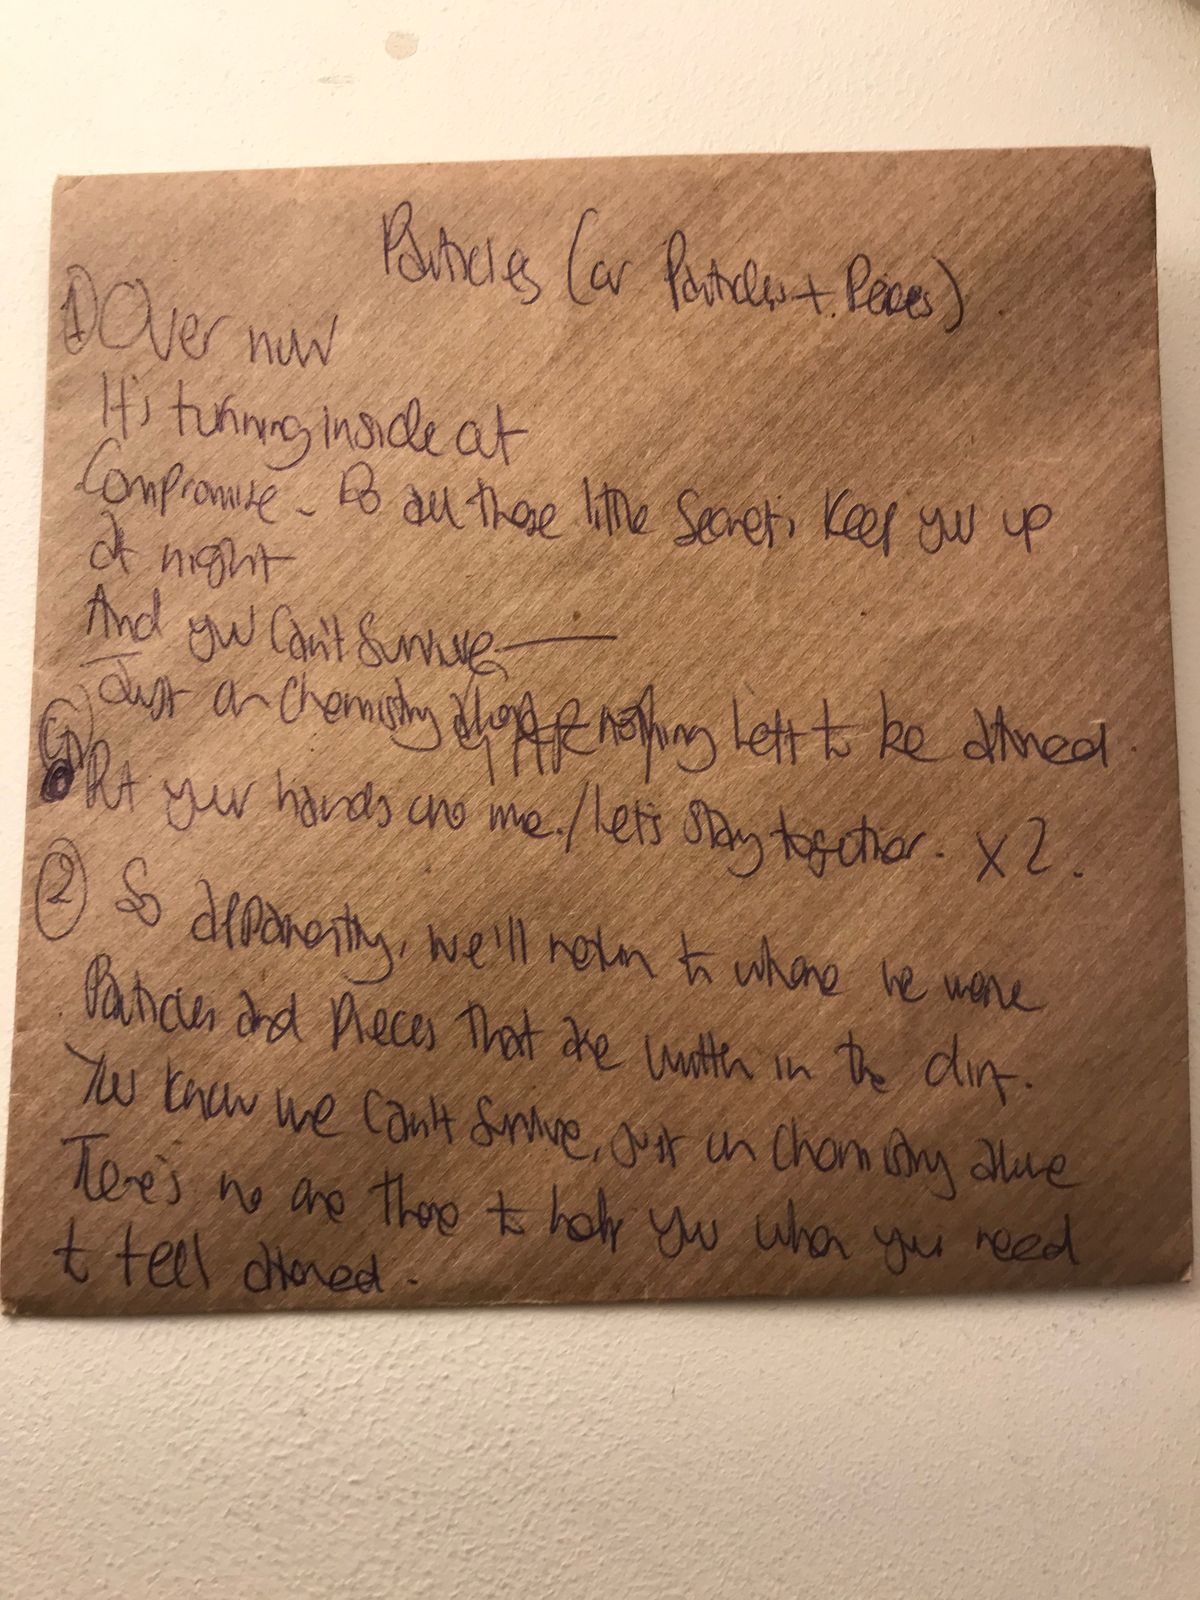 Particles (or Particles + Pieces).
① Over now
It's turning inside out
Compromise - Do all those little secrets keep you up
at night
And you can't survive
Just on chemistry alone nothing left to be atoned.
Put your hands on me. / Let's stay together. x 2.
② So apparently, we'll return to where we were
Particles and pieces that are written in the dirt.
You know we can't survive, just on chemistry alone
There's no one there to help you when you need
to feel atoned.